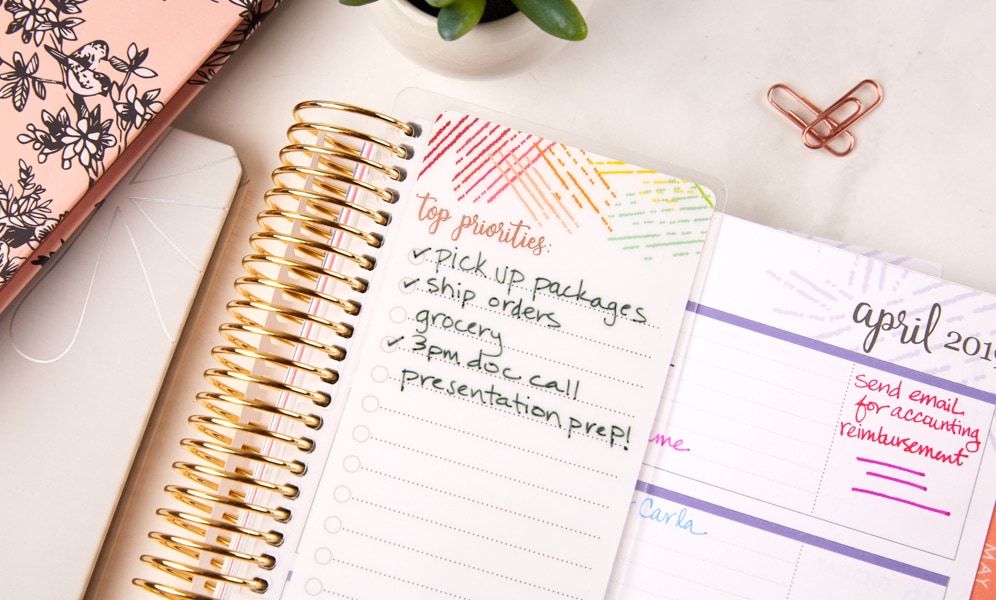 top priorities:
pick up packages
ship orders
grocery
3pm doc call
presentation prep!
april 201
send email
for accounting
reimbursement
me
Carla
MAY